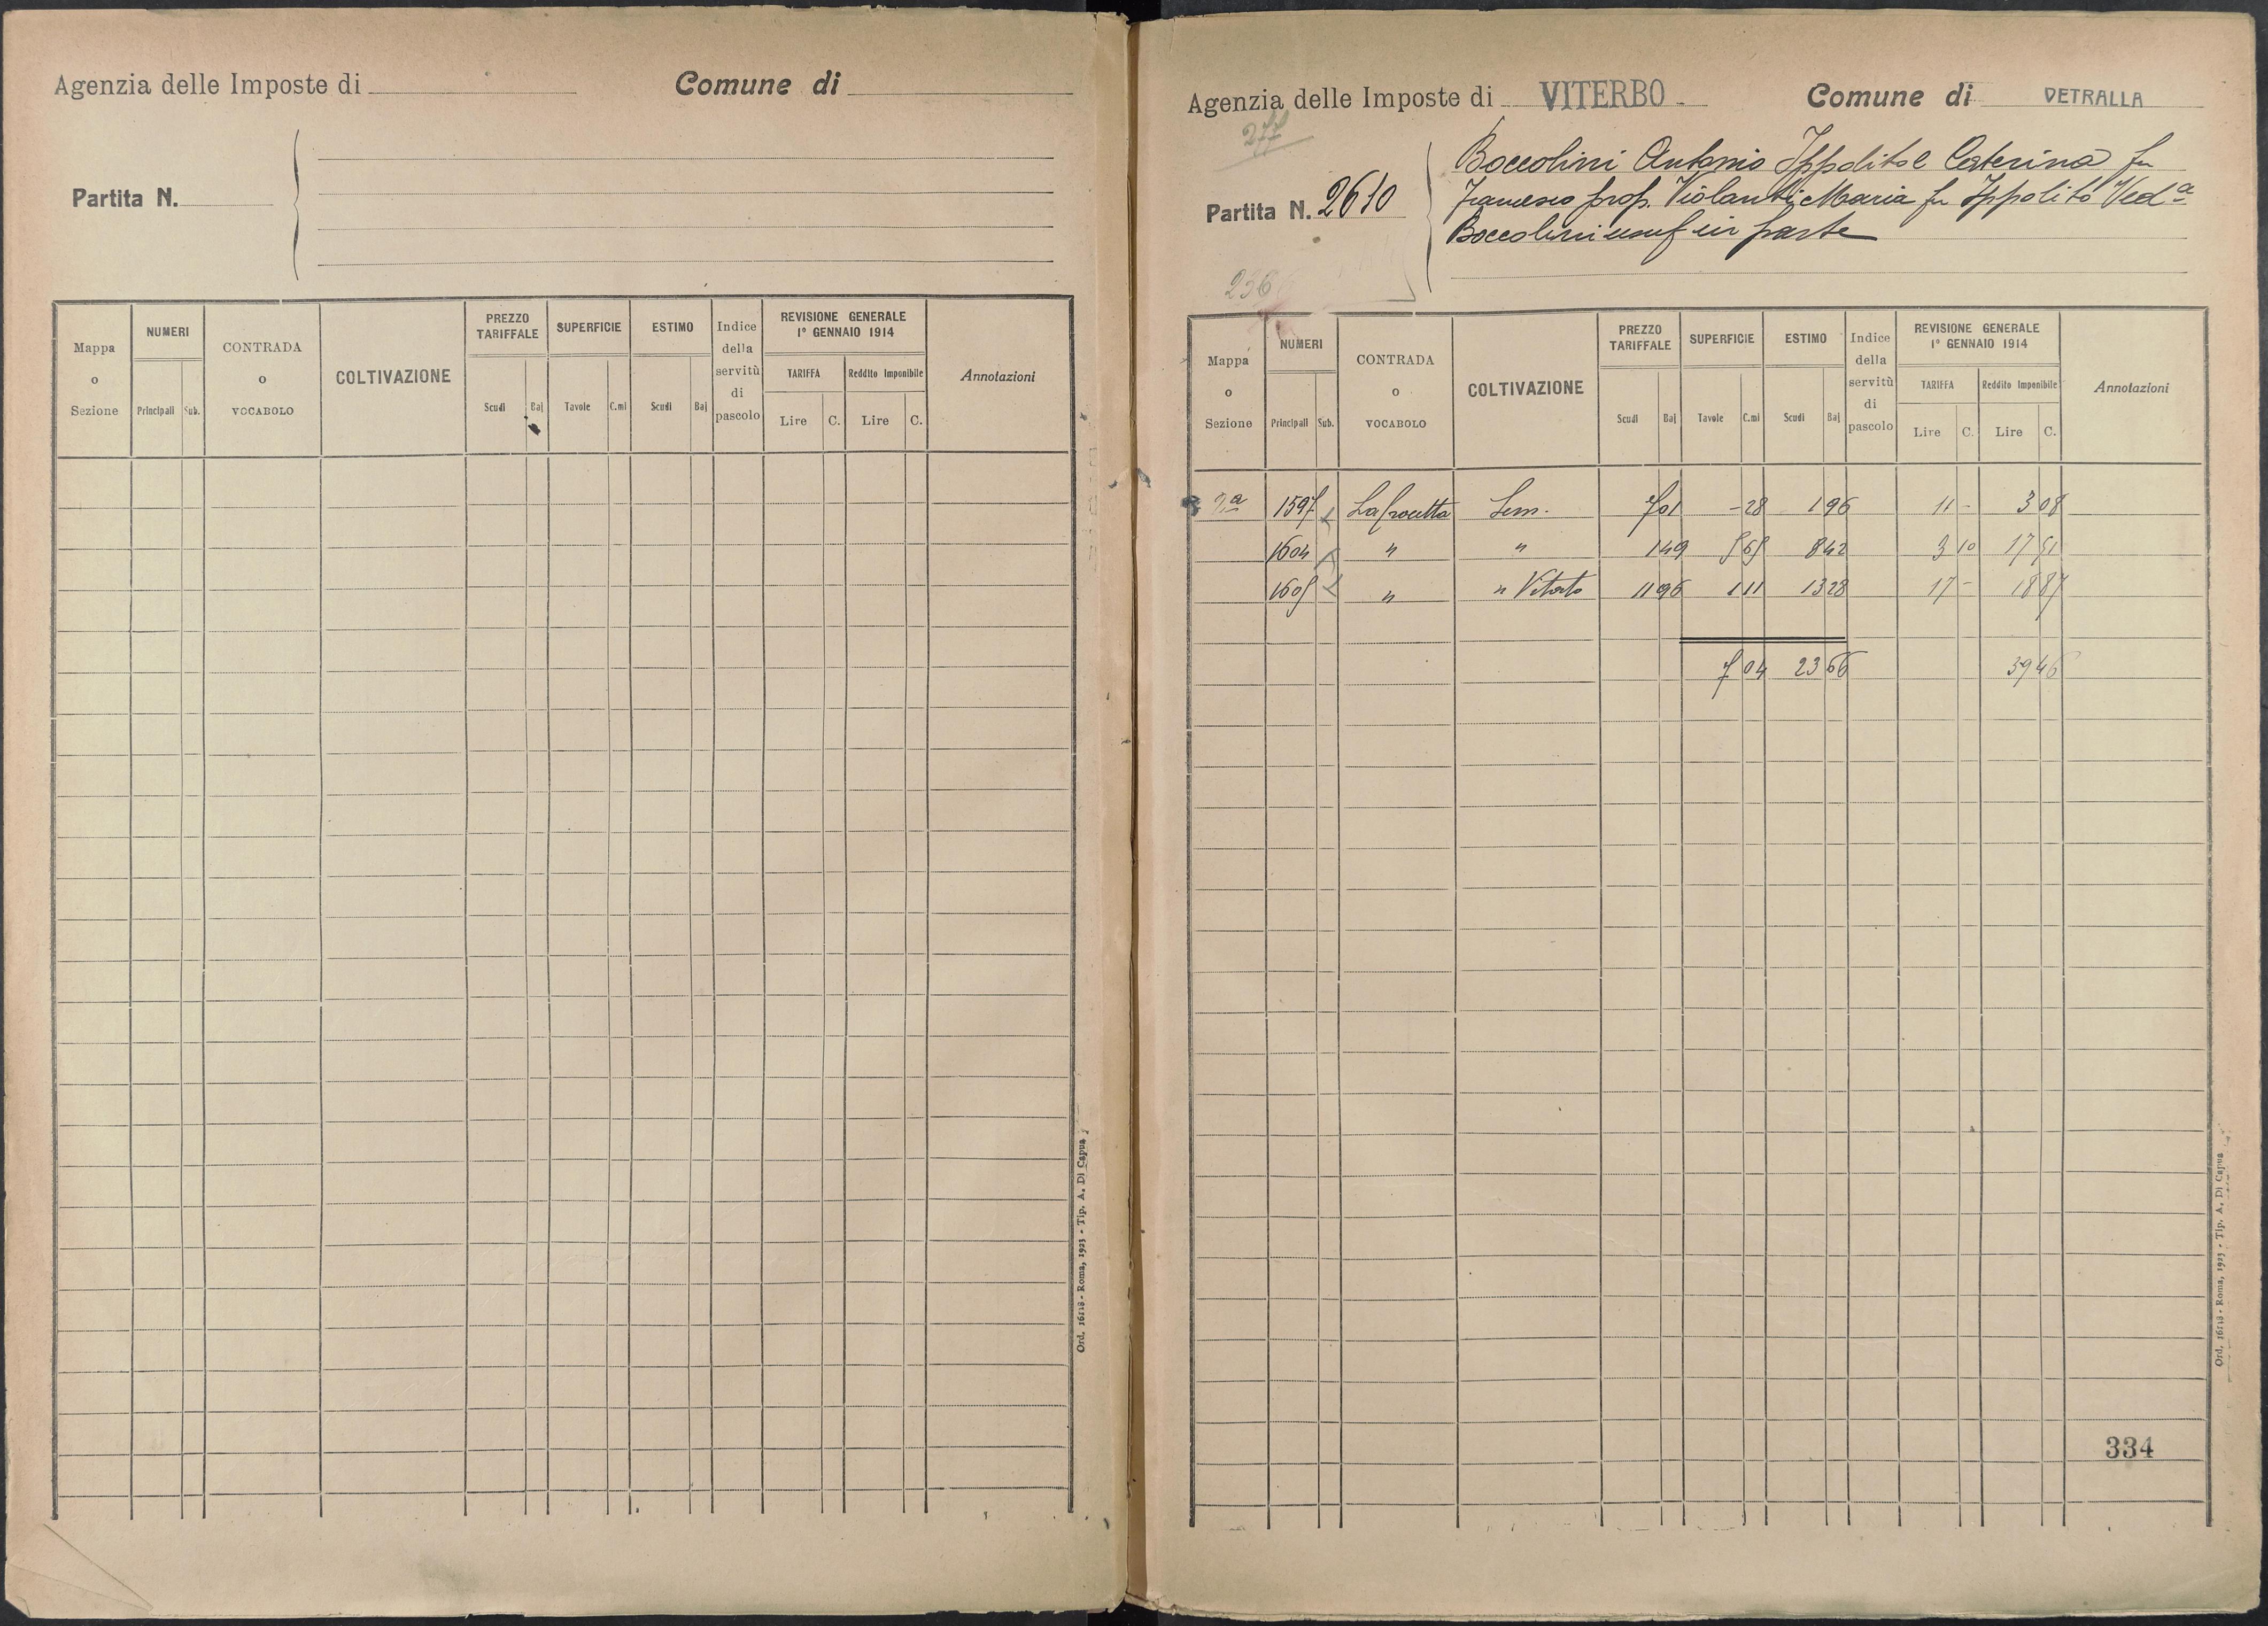 Agenzia delle Imposte di Comune di
Partita N.
Mappa o Sezione NUMERI Principali Sub. CONTRADA o VOCABOLO COLTIVAZIONE PREZZO TARIFFALE Scudi Baj SUPERFICIE Tavole C.mi ESTIMO Scudi Baj Indice della servitù di pascolo REVISIONE GENERALE 1° GENNAIO 1914 TARIFFA Lire C. Reddito Imponibile Lire C. Annotazioni
Ord. 16118 - Roma, 1923 - Tip. A. Di Capua
Agenzia delle Imposte di VITERBO Comune di VETRALLA
277
Partita N. 2610
Boccolini Antonio Ippolito e Caterina fu
Francesco prop. Violanti Maria fu Ippolito Ved.a
Boccolini usuf in parte
236
Mappa o Sezione NUMERI Principali Sub. CONTRADA o VOCABOLO COLTIVAZIONE PREZZO TARIFFALE Scudi Baj SUPERFICIE Tavole C.mi ESTIMO Scudi Baj Indice della servitù di pascolo REVISIONE GENERALE 1° GENNAIO 1914 TARIFFA Lire C. Reddito Imponibile Lire C. Annotazioni
2a 1597 La Crocetta Sem. 7 01 - 28 1 96 11 - 3 08
1604 " " 1 49 5 65 8 42 3 10 17 51
1605 " " Vitato 11 96 1 11 13 28 17 - 18 87
7 04 23 66 39 46
334
Ord. 16118 - Roma, 1923 - Tip. A. Di Capua